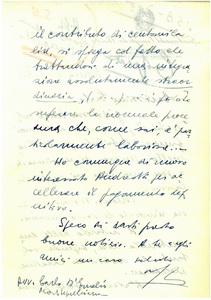 il contributo di centomila
lire, si spiega col fatto che
trattandosi di una integra
zione assolutamente straor
dinaria, si è potuto
superare la normale proce
dura che, come sai, è par
ticolarmente laboriosa...
Ho comunque di nuovo
interessato per ac
cellerare il pagamento def
nitivo.
Spero di darti presto
buone notizie. A te e agli
amici un caro saluto
Avv. Carlo